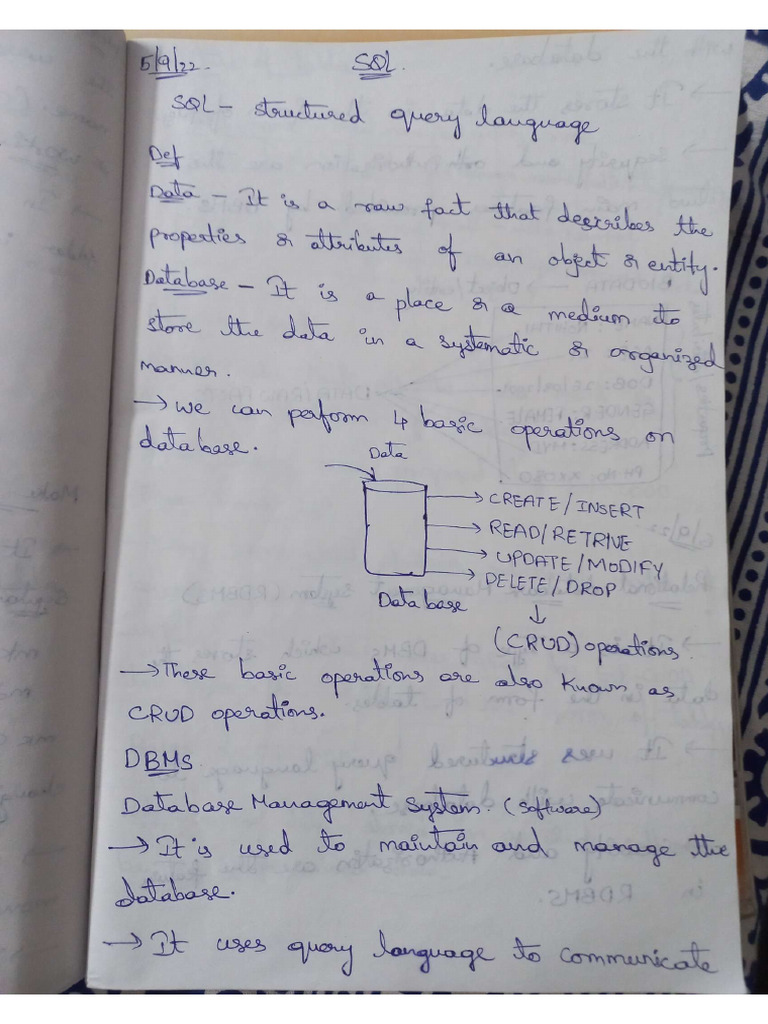 5/9/22. SQL.
SQL - structured query language
Def
Data - It is a raw fact that describes the
properties & attributes of an object & entity.
Database - It is a place & a medium to
store the data in a systematic & organized
manner.
→ We can perform 4 basic operations on
database.
Data
→ CREATE/INSERT
→ READ/RETRIVE
→ UPDATE/MODIFY
→ DELETE/DROP
Database
↓
(CRUD) operations.
→ These basic operations are also known as
CRUD operations.
DBMS
Database Management System. (software)
→ It is used to maintain and manage the
database.
→ It uses query language to communicate